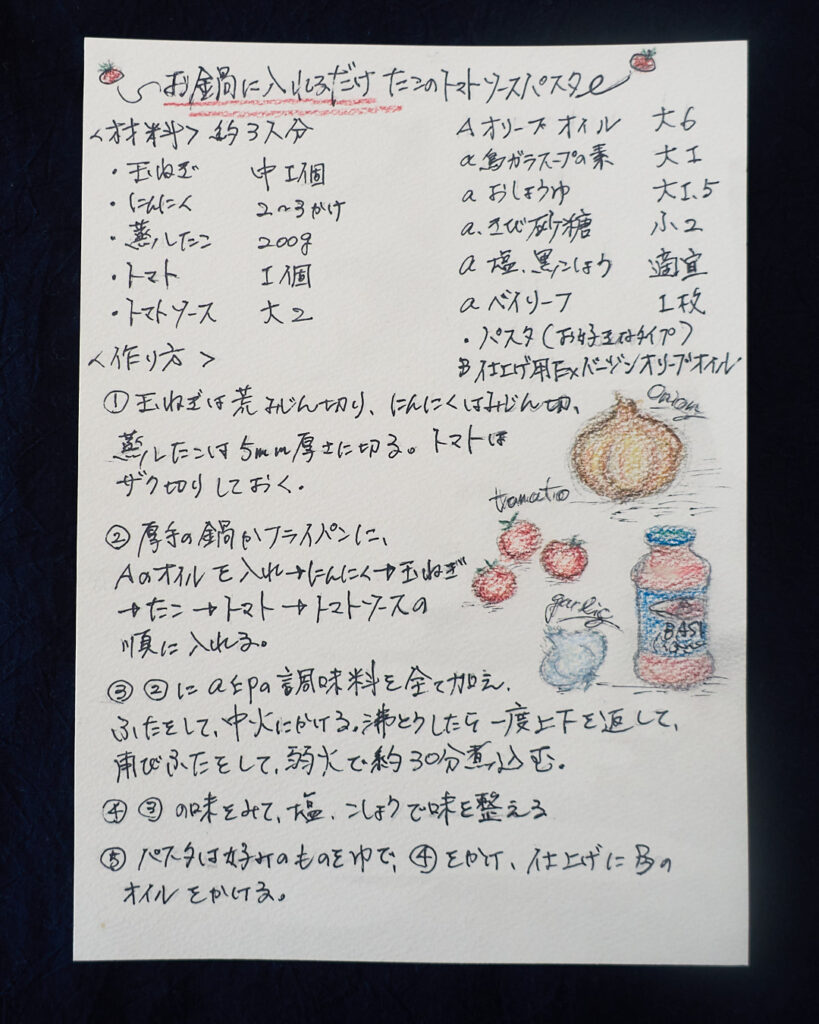 お鍋に入れるだけ たこのトマトソースパスタ
<材料> 約3人分
・玉ねぎ 中1個
・にんにく 2〜3かけ
・蒸したこ 200g
・トマト 1個
・トマトソース 大2
A オリーブオイル 大6
a 鳥ガラスープの素 大1
a おしょうゆ 大1.5
a. きび砂糖 小2
a 塩、黒こしょう 適宜
a ベイリーフ 1枚
・パスタ(お好きなタイプ)
B 仕上げ用Exバージンオリーブオイル
<作り方>
① 玉ねぎは荒みじん切り、にんにくはみじん切、
蒸したこは5mm厚さに切る。トマトは
ザク切りしておく.
② 厚手の鍋かフライパンに、
Aのオイルを入れ→にんにく→玉ねぎ
→たこ→トマト→トマトソースの
順に入れる。
③ ②にa印の調味料を全て加え、
ふたをして、中火にかける。沸とうしたら一度上下を返して、
再びふたをして、弱火で約30分煮込む。
④ ③の味をみて、塩、こしょうで味を整える
⑤ パスタは好みのものをゆで、④をかけ、仕上げにBの
オイルをかける。
Onion
tomato
garlic
BASI